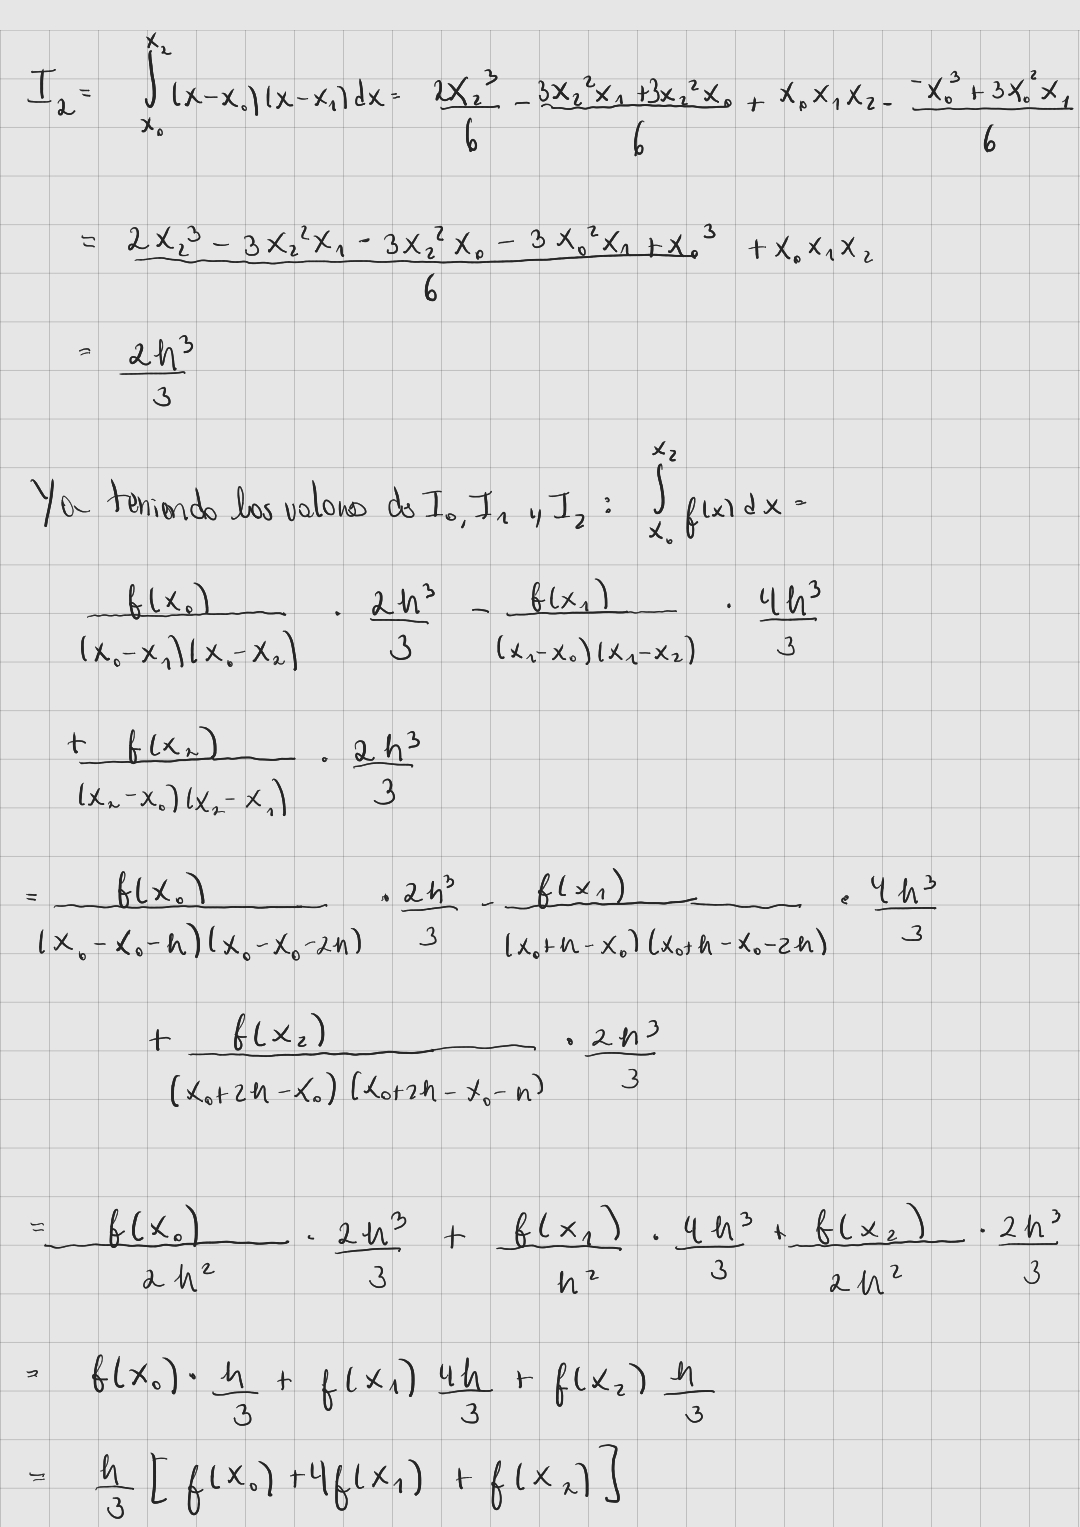 I₂ = ∫_{x₀}^{x₂} (x-x₀)(x-x₁)dx = 2x₂³/6 - (3x₂²x₁+3x₂²x₀)/6 + x₀x₁x₂ - (-x₀³+3x₀²x₁)/6
= (2x₂³ - 3x₂²x₁ - 3x₂²x₀ - 3x₀²x₁ + x₀³)/6 + x₀x₁x₂
= 2h³/3
Ya teniendo los valores de I₀, I₁ y I₂ : ∫_{x₀}^{x₂} f(x)dx =
f(x₀)/((x₀-x₁)(x₀-x₂)) · 2h³/3 - f(x₁)/((x₁-x₀)(x₁-x₂)) · 4h³/3
+ f(x₂)/((x₂-x₀)(x₂-x₁)) · 2h³/3
= f(x₀)/((x₀-x₀-h)(x₀-x₀-2h)) · 2h³/3 - f(x₁)/((x₀+h-x₀)(x₀+h-x₀-2h)) · 4h³/3
+ f(x₂)/((x₀+2h-x₀)(x₀+2h-x₀-h)) · 2h³/3
= f(x₀)/2h² · 2h³/3 + f(x₁)/h² · 4h³/3 + f(x₂)/2h² · 2h³/3
= f(x₀) · h/3 + f(x₁) 4h/3 + f(x₂) h/3
= h/3 [f(x₀) + 4f(x₁) + f(x₂)]